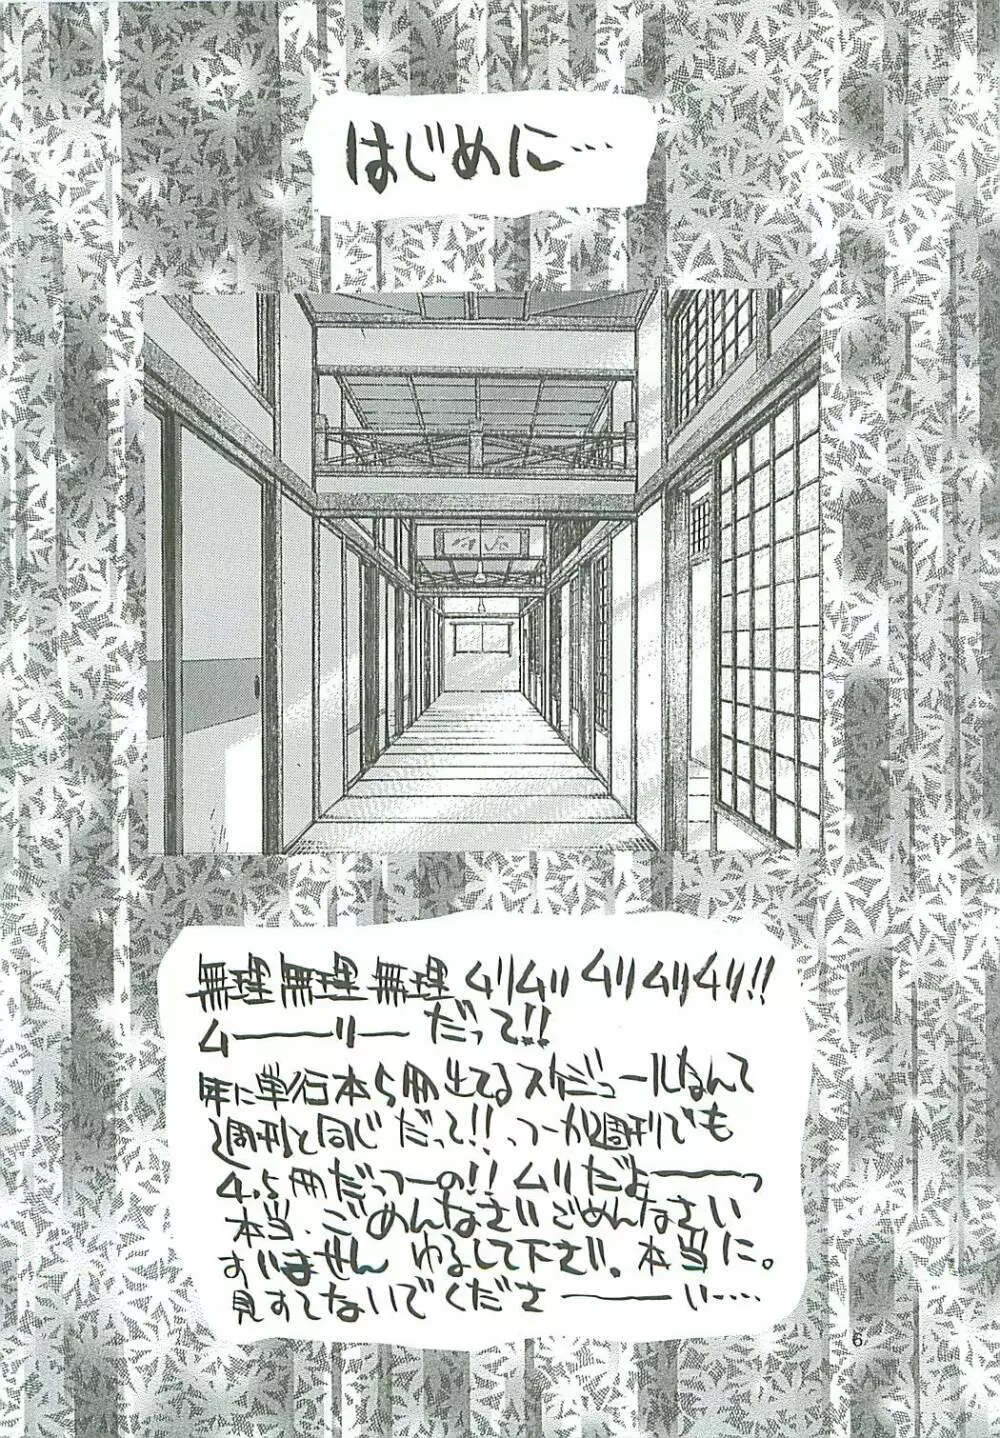 はじめに…
無理 無理 無理 ムリムリ ムリムリムリ!!
ム――リ― だって!!
年に単行本5冊出てるスケジュールなんて
週刊と同じだって!! っつーか週刊でも
4.5冊だっつーの!! ムリだよ――っ
本当、ごめんなさいごめんなさい
すいません ゆるして下さい。本当に。
見すてないでくださ――い……
6